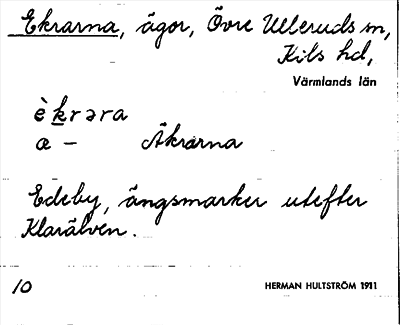 Ekrarna, ägor, Övre Ulleruds sn,
Kils hd,
Värmlands län
è k r ə r a
æ – Äkrarna
Edeby, ängsmarker utefter
Klarälven.
10 HERMAN HULTSTRÖM 1911